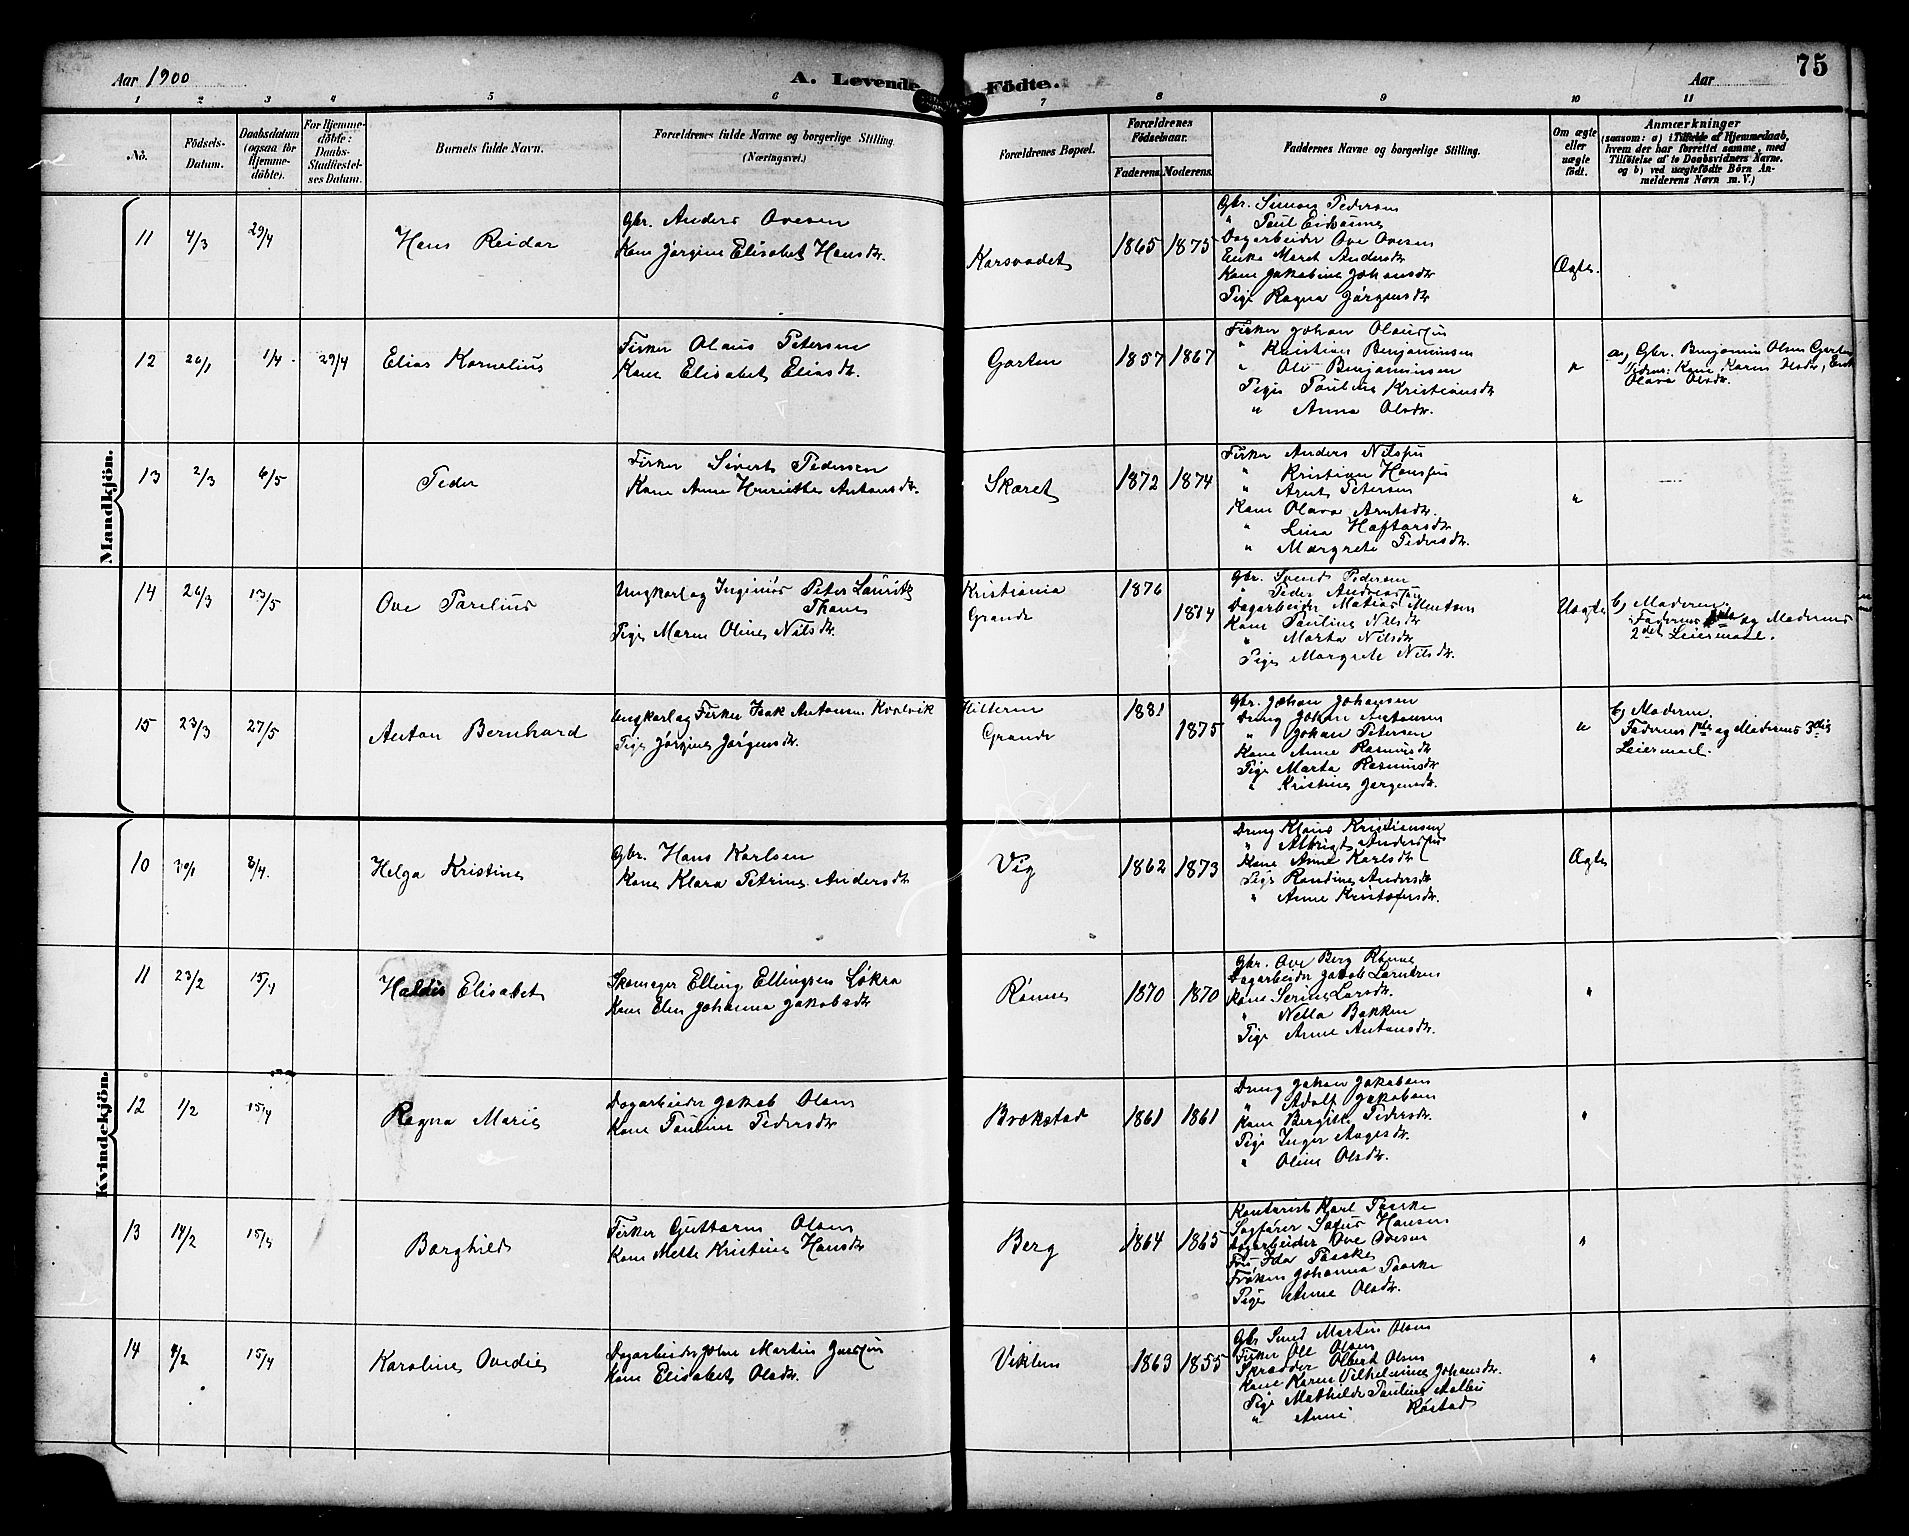 Aar 1900
A. Levende Födte.
Aar
75
1 2 3 4 5 6 7 8 9 10 11
No.
Födsels-
Datum.
Daabsdatum
(ogsaa for
Hjemme-
döbte).
For Hjemme-
döbte:
Daabs-
Stadfæstel-
ses Datum.
Barnets fulde Navn.
Forældrenes fulde Navne og borgerlige Stilling.
(Næringsvei.)
Forældrenes Bopæl.
Forældrenes
Födselsaar.
Faderens. Moderens.
Faddernes Navne og borgerlige Stilling.
Om ægte
eller
uægte
födt.
Anmærkninger
(saasom: a) i Tilfælde af Hjemmedaab,
hvem der har forrettet samme, med
Tilföielse af to Daabsvidners Navne.
og b) ved uægtefödte Börn An-
melderens Navn m. V.)
Mandkjön.
11 4/3 29/4
Hans Reidar
Gbr. Anders Ovesen
Kone Jørgine Elisabet Hansdr.
Karsvadet
1865 1875
Gbr. Simon Pedersen
" Paul
Dagarbeider Ove Ovesen
Enke Maret Andersdr
Kone Jakobine Johansdr
Pige Ragna Jørgensdr
Ægte.
12 26/1 1/4 29/4
Elias Kornelius
Fisker Olaus Petersen
Kone Elisabet Eliasdr.
Garten
1857 1867
Fisker Johan Olaussøn
" Kristian Benjaminsen
" Ole Benjaminsen
Pige Pauline Kristiansdr
" Anna Olsdr.
"
a, Gbr. Benjamin Olsen Garten
Vidner: Kone Karen Olsdr,
Olava Olsdr.
13 2/3 6/5
Peder
Fisker Sivert Pedersen
Kone Anne Henriette Antonsdr.
Skaret
1872 1874
Fisker Anders Nilssøn
" Kristian Hanssøn
" Arnt Petersen
Kone Olava Arntsdr.
" Lina Haftorsdr
" Margrete Pedersdr.
"
14 26/3 13/5
Ove Parelius
Ungkarl og Ingeniør Peter Lauritz
Thams
Pige Maren Oline Nilsdr.
Kristiania
Grande
1876
1874
Gbr. Svend Pedersen
" Peder Andreassøn
Dagarbeider Matias Mentsen
Kone Pauline Nilsdr
" Marta Nilsdr
Pige Margrete Nilsdr.
Uægte
b) Moderen.
Faderens og Moderens
2det Leiermaal.
15 23/3 27/5
Anton Bernhard
Ungkarl og Fisker Isak Antonsen Kvalvik
Pige Jørgine Jørgensdr.
Hitteren
Grande
1881
1875
Gbr. Johan Johansen
Dreng Johan Antonsen
" Johan Petersen
Kone Anne Rasmusdr
Pige Marta Rasmusdr
" Kristine Jørgensdr.
"
b) Moderen
Faderens 1ste og Moderens 3die
Leiermaal.
Kvindekjön.
10 30/1 8/4.
Helga Kristine
Gbr. Hans Karlsen
Kone Klara Petrine Andersdr
Vig
1862 1873
Dreng Klaus Kristiansen
" Albrigt Anderssøn
Kone Anne Karlsdr
Pige Randine Andersdr
" Anne Kristofersdr.
Ægte
11 23/2 15/4
Haldis Elisabet
Skomager Elling Ellingsen Løkra
Kone Elen Johanna Jakobsdr
Rønne
1870 1870
Gbr. Ove Berg Rønne
Dagarbeider Jakob Larntzen
Kone Serine Larsdr.
" Nella Bakken
Pige Anne Antonsdr.
"
12 1/2 15/4
Ragna Marie
Dagarbeider Jakob Olsen
Kone Pauline Pedersdr
Brekstad
1861 1861
Dreng Johan Jakobsen
" Adolf Jakobsen
Kone Bergitte Pedersdr.
Pige Inger Aagesdr.
" Oline Olsdr.
"
13 14/2 15/4
Borghild
Fisker Guttorm Olsen
Kone Mette Kristine Hansdr
Berg
1864 1865
Kontorist Karl Paaske
Sagfører Sofus Hansen
Dagarbeider Ove Ovesen
Fru Ida Paaske
Frøken Johanna Paaske
Pige Anne Olsdr.
"
14 4/2 15/4
Karoline Ovedie
Dagarbeider John Martin Jenssøn
Kone Elisabet Olsdr.
Viklem
1863 1855
Gbr Smed Martin Olsen
Fisker Ole Olsen
Skrædder Olbert Olsen
Kone Karen Vilhelmine Johansdr.
Pige Mathilde Pauline Aalbu
" Anne Røstad
"